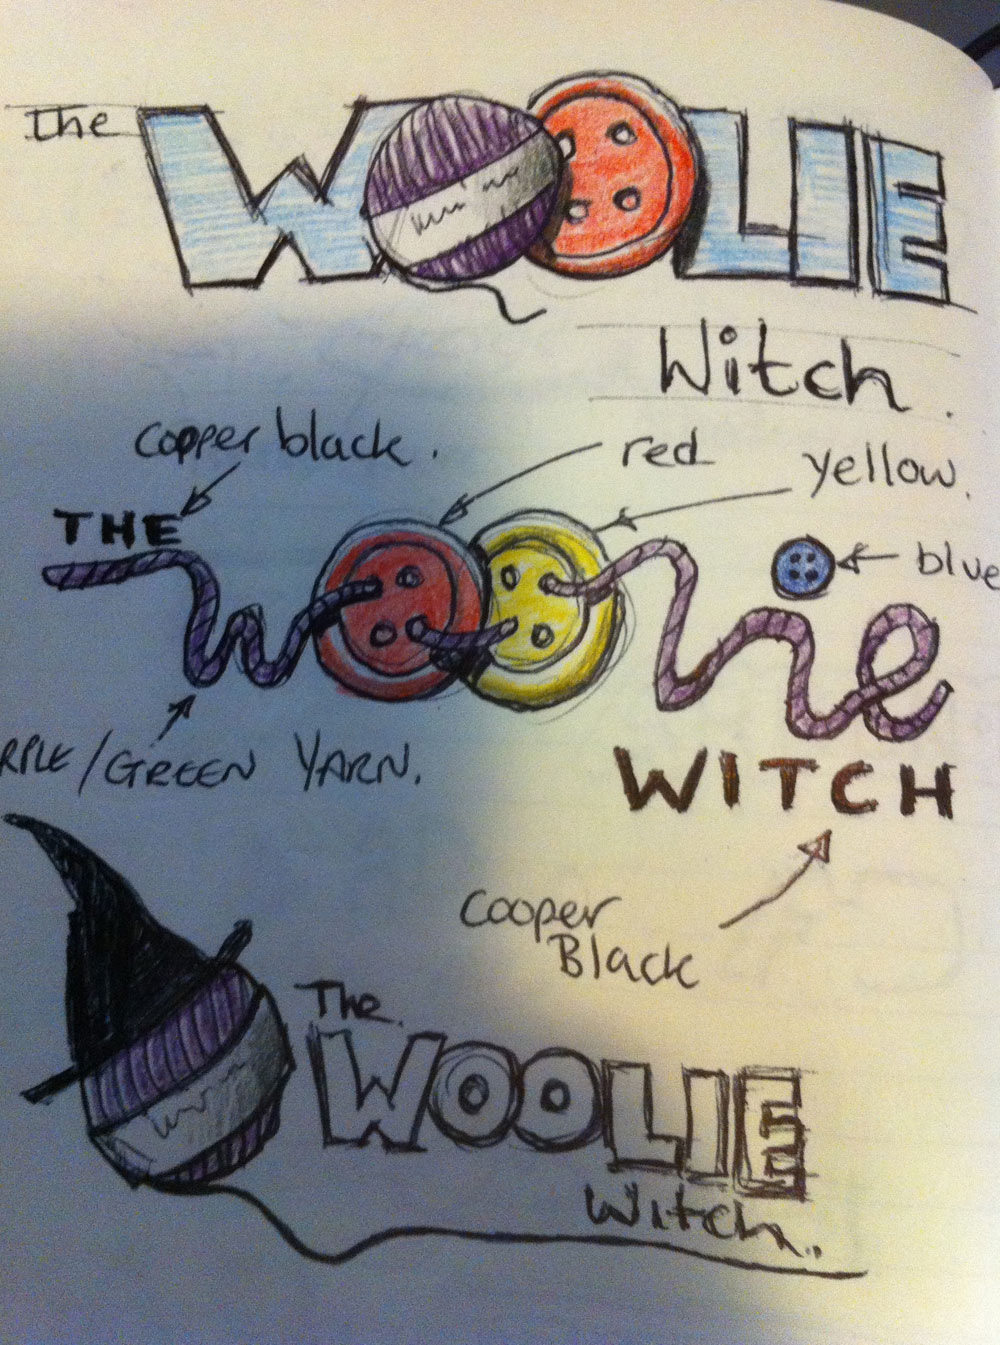 the WOOLIE
Witch.
copper black.
red
yellow.
THE
woolie
blue
RPLE/GREEN YARN.
WITCH
Cooper
Black
The
WOOLIE
Witch.